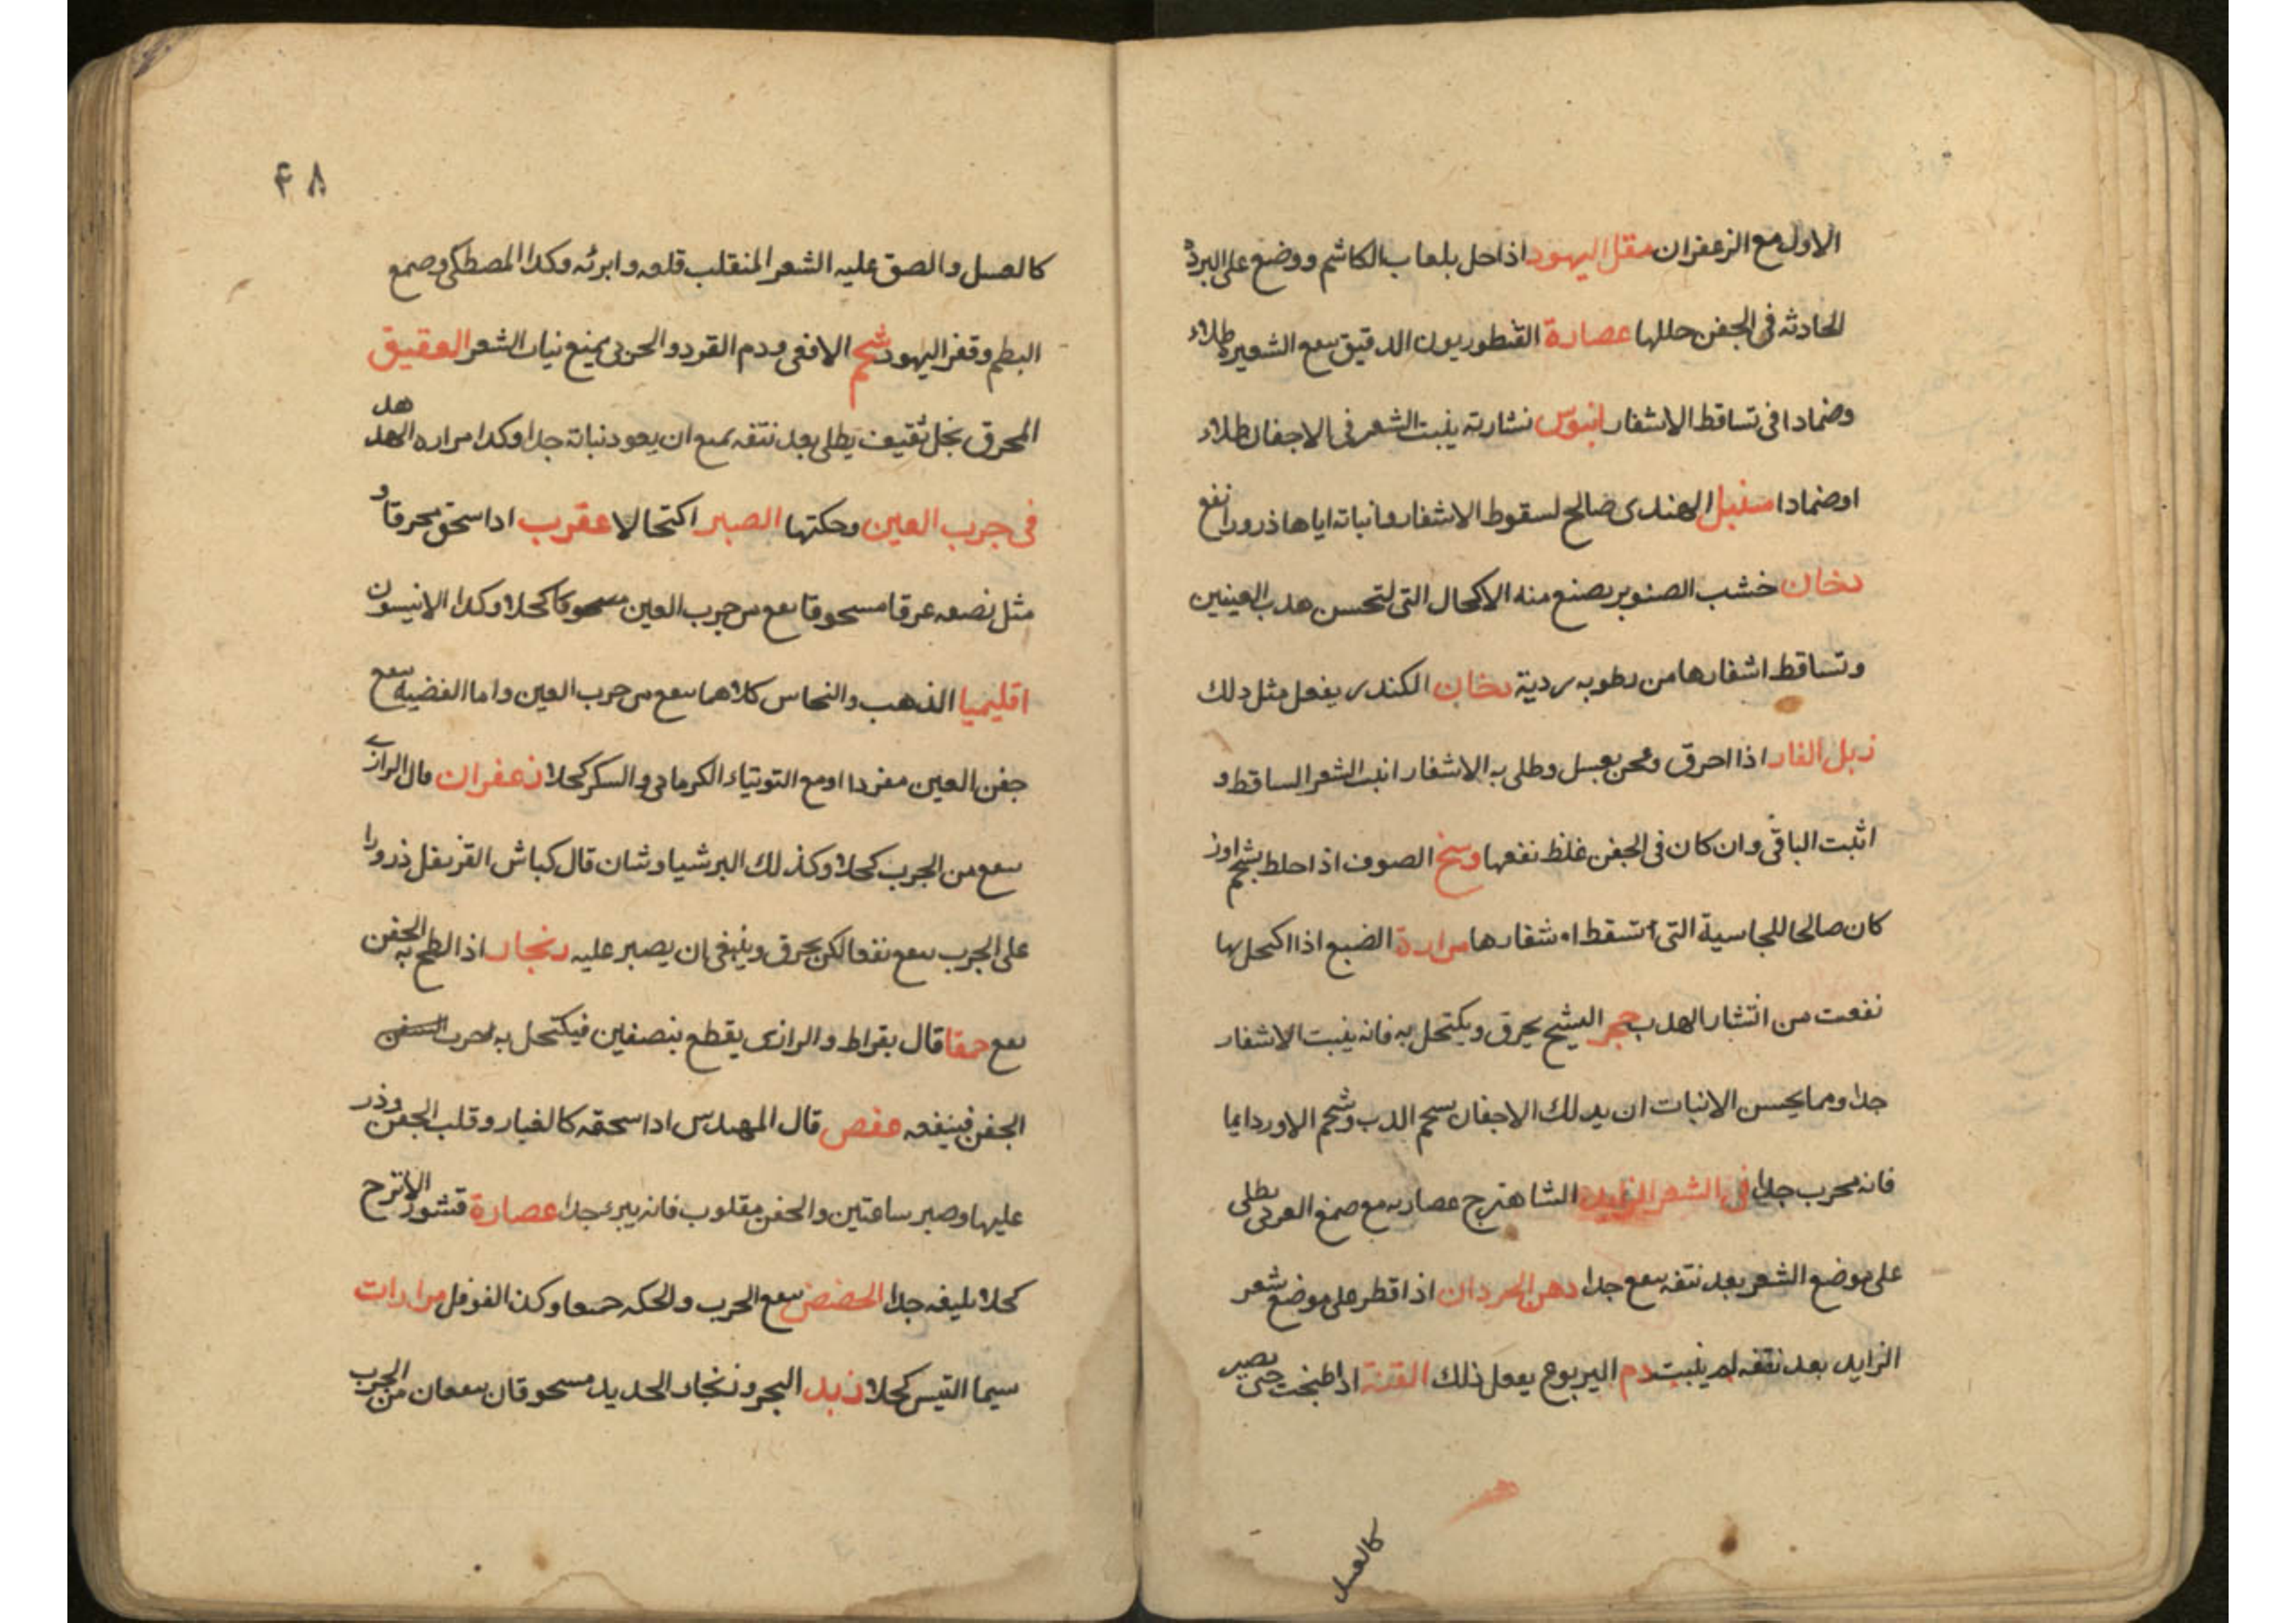 الاول مع الزعفران مقل اليهود اذا حل بلعاب الكاشم ووضع على البردة
الحادثه فى الجفن حللها عصارة القنطوريون الدقيق ينفع الشعيرة طلاء
وضمادا فى تساقط الاشفار ابنوس نشارته ينبت الشعر فى الاجفان طلاء
او ضمادا سنبل الهندى صالح لسقوط الاشفار وانباته اياها ذرورا نفع
دخان خشب الصنوبر يصنع منه الاكحال التى لتحسن هدب العينين
وتساقط اشفارها من رطوبه ردية دخان الكندر يفعل مثل ذلك
زبل الفار اذا احرق وعجن بعسل وطلى به الاشفار انبت الشعر الساقط و
اثبت الباقى وان كان فى الجفن غلظ نفعها وسخ الصوف اذا خلط بشحم اوز
كان صالحا للجاسية التى تسقط اشفارها مرارة الضبع اذا اكتحل بها
نفعت من انتشار الهدب حجر المشيح يحرق ويكتحل به فانه ينبت الاشفار
جدا ومما يحسن الانبات ان يدلك الاجفان بشحم الدب وشحم الاوز دايما
فانه مجرب جدا فى الشعر الزايد الشاهترج عصارته مع صمغ العربى يطلى
على موضع الشعر بعد نتفه ينفع جدا دهن الجردان اذا قطر على موضع شعر
الزايد بعد نتفه لم ينبت دم اليربوع يفعل ذلك القنة اذا طبخت حتى تصير
كالعسل
۴۸
كالعسل والصق عليه الشعر المنقلب قلعه وابرئه وكذا المصطكى وصمغ
البطم وقفر اليهود شحم الافعى ودم القرد والحردى يمنع نبات الشعر العقيق
المحرق بخل ثقيف يطلى بعد نتفه يمنع ان يعود نباته جدا وكذا مراره الهدهد
فى جرب العين وحكتها الصبر اكتحالا عقرب اذا سحق محرقا و
مثل نصفه عرقا مسحوقا ينفع من جرب العين كحلا وكذا الانيسون
اقليميا الذهب والنحاس كلاهما ينفع من جرب العين واما الفضيه ينفع
جفن العين مفردا او مع التوتياء الكرمانى والسكر كحلا زعفران قال الرازى
ينفع من الجرب كحلا وكذلك البرشياوشان قال كباش القرنفل ذرورا
على الجرب ينفع نفعا لكن يحرق وينبغى ان يصبر عليه زنجار اذا لطخ به الجفن
نفع حمقا قال بقراط والرازى يقطع بنصفين فيكتحل به لجرب
الجفن فينفعه عفص قال المهندس اذا سحقه كالغبار وقلب الجفن وذر
عليها وصبر ساعتين والجفن مقلوب فانه يبرء جدا عصارة قشور الاترج
كحلا بليغه جدا الحضض ينفع الجرب والحكه جميعا وكذا الفوفل مرارات
سيما التيس كحلا زبد البحر وزنجار الحديد مسحوقان ينفعان من الجرب